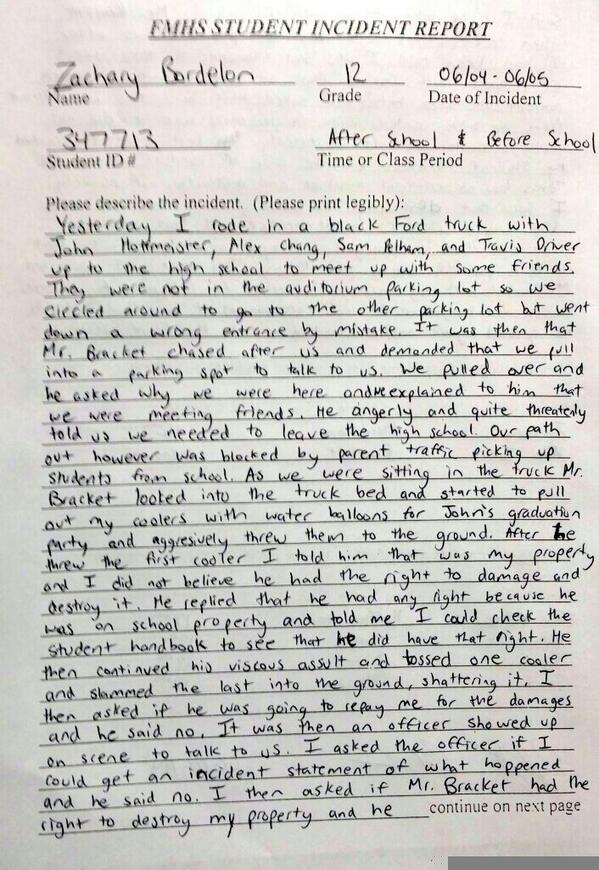 FMHS STUDENT INCIDENT REPORT
Zachary Bordelon 12 06/04 - 06/05
Name Grade Date of Incident
347713 After School & Before School
Student ID # Time or Class Period
Please describe the incident. (Please print legibly):
Yesterday I rode in a black Ford truck with
John Hoffmeister, Alex Chang, Sam Pelham, and Travis Driver
up to the high school to meet up with some friends.
They were not in the auditorium parking lot so we
circled around to go to the other parking lot but went
down a wrong entrance by mistake. It was then that
Mr. Bracket chased after us and demanded that we pull
into a parking spot to talk to us. We pulled over and
he asked why we were here and we explained to him that
we were meeting friends. He angerly and quite threatenly
told us we needed to leave the high school. Our path
out however was blocked by parent traffic picking up
students from school. As we were sitting in the truck Mr.
Bracket looked into the truck bed and started to pull
out my coolers with water balloons for John's graduation
party and aggresively threw them to the ground. After he
threw the first cooler I told him that was my property
and I did not believe he had the right to damage and
destroy it. He replied that he had any right because he
was on school property and told me I could check the
student handbook to see that he did have that right. He
then continued his viscous assult and tossed one cooler
and slammed the last into the ground, shattering it. I
then asked if he was going to repay me for the damages
and he said no. It was then an officer showed up
on scene to talk to us. I asked the officer if I
could get an incident statement of what happened
and he said no. I then asked if Mr. Bracket had the
right to destroy my property and he continue on next page